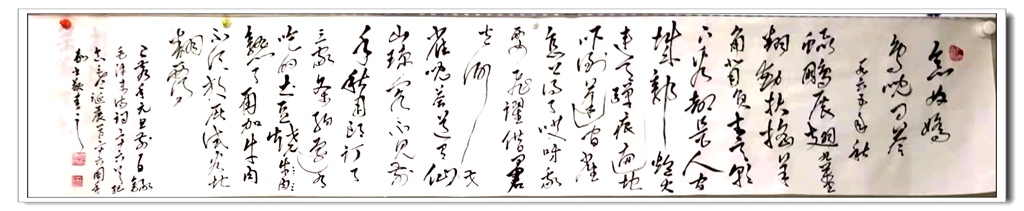 念奴娇
鸟儿问答
一九六五年秋
鲲鹏展翅九万里
翻动扶摇羊
角背负青天朝
下看都是人间
城郭炮火
连天弹痕遍地
吓倒蓬间雀
怎么得了哎呀我
要飞跃借问君
去何方
雀儿答道有仙
山琼阁不见前
年秋月朗订了
三家条约还有
吃的土豆烧
熟了再加牛肉
不须放屁试看天地
翻覆
己亥年元旦前
毛泽东诗词六十六首纪
念诞辰百二十六周年